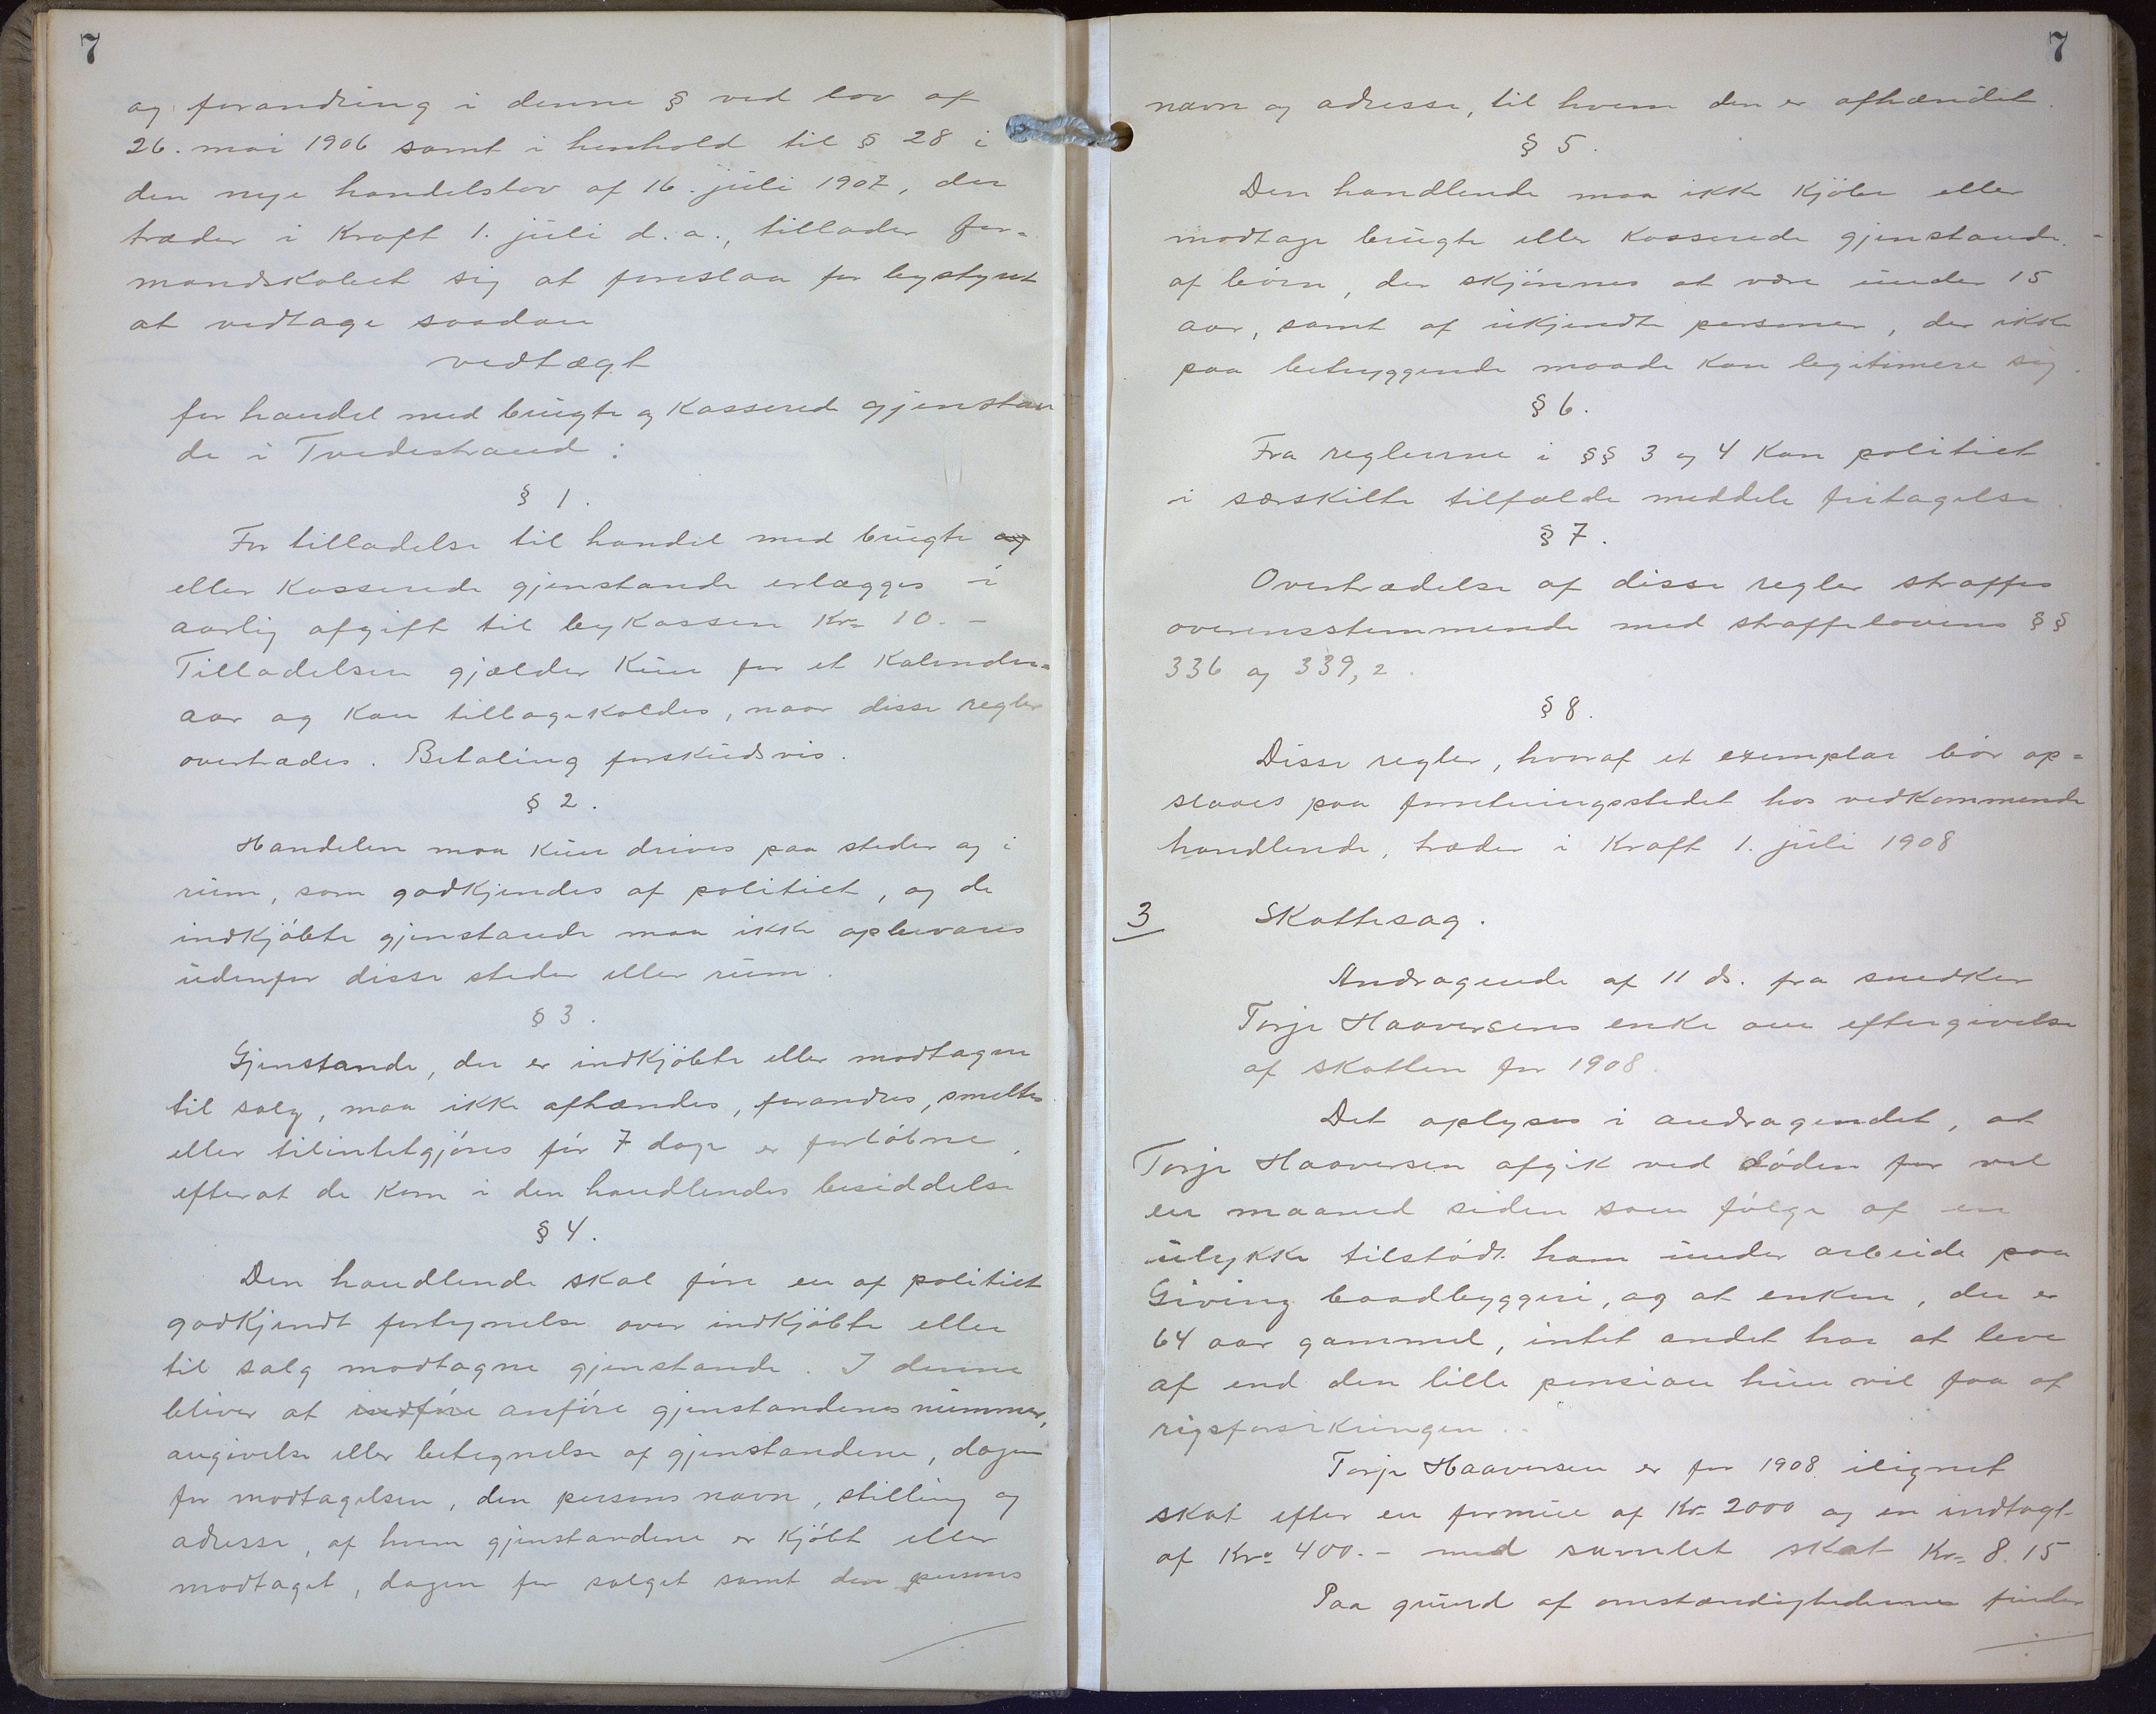 7
og forandring i denne § ved lov af
26. mai 1906 samt i henhold til § 28 i
den nye handelslov af 16. juli 1907, der
træder i Kraft 1. juli d. a., tillader for-
mandskabet sig at foreslaa for bystyret
at vedtage saadan
vedtægt
for handel med brugte og Kasserede gjenstan
de i Tvedestrand:
§ 1.
For tilladelse til handel med brugte og
eller Kasserede gjenstande erlægges i
aarlig afgift til bykassen Kr= 10.-
Tilladelsen gjælder Kun for et Kalender=
aar og Kan tilbagekaldes, naar disse regler
overtrædes. Betaling forskudsvis.
§ 2.
Handelen maa Kun drives paa steder og i
rum, som godkjendes af politiet, og de
indkjøbte gjenstande maa ikke opbevares
udenfor disse steder eller rum.
§ 3.
Gjenstande, der er indkjøbte eller modtagne
til salg, maa ikke afhændes, forandres, smeltes
eller tilintetgjøres før 7 dage er forløbne,
efterat de Kom i den handlendes besiddelse
§ 4.
Den handlende skal føre en af politiet
godkjendt fortegnelse over indkjøbte eller
til salg modtagne gjenstande. I denne
bliver at indføre anføre gjenstandenes nummer,
angivelse eller betegnelse af gjenstandene, dagen
for modtagelsen, den persons navn, stilling og
adresse, af hvem gjenstandene er Kjøbt eller
modtaget, dagen for salget samt den persons
7
navn og adresse, til hvem den er afhændet.
§ 5.
Den handlende maa ikke Kjøbe eller
modtage brugte eller Kasserede gjenstande
af børn, der skjønnes at være under 15
aar, samt af ukjendte personer, der ikke
paa betryggende maade Kan legitimere sig.
§ 6.
Fra reglerne i §§ 3 og 4 Kan politiet
i særskilte tilfælde meddele fritagelse.
§ 7.
Overtrædelse af disse regler straffes
overensstemmende med straffelovens §§
336 og 339, 2.
§ 8.
Disse regler, hvoraf et exemplar bør op=
slaaes paa forretningsstedet hos vedkommende
handlende, træder i Kraft 1. juli 1908
3 Skattesag.
Andragende af 11 ds. fra snedker
Torje Haaversens enke om eftergivelse
af skatten for 1908.
Det oplyses i andragendet, at
Torje Haaversen afgik ved døden for vel
en maaned siden som følge af en
ulykke tilstødt ham under arbeide paa
Giving baadbyggeri, og at enken, der er
64 aar gammel, intet andet har at leve
af end den lille pension hun vil faa af
rigsforsikringen.
Torje Haaversen er for 1908 ilignet
skat efter en formue af Kr= 2000 og en indtægt
af Kr= 400.- med samlet skat Kr= 8.15
Paa grund af omstændighederne finder